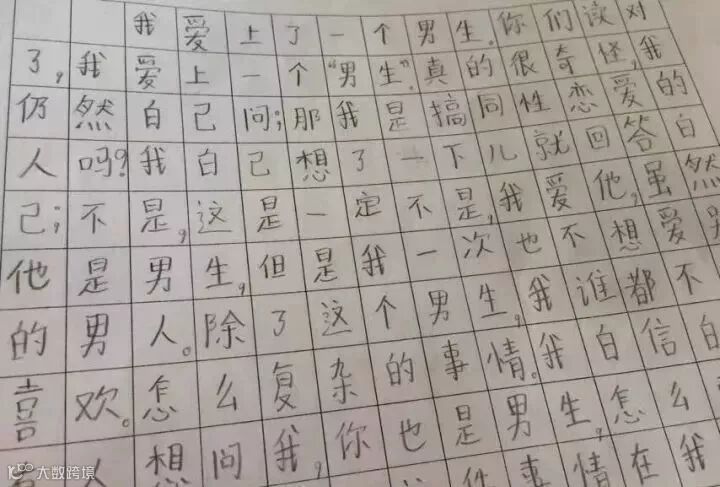 我爱上了一个男生。你们读对
了,我爱上一个“男生”。真的很奇怪,我
仍然自己问;那我是搞同性恋爱的
人吗?我自己想了一下儿就回答自
己;不是,这是一定不是,我爱他,虽然
他是男生,但是我一次也不想爱别
的男人。除了这个男生,我谁都不
喜欢。怎么复杂的事情。我自信自
人想问我,你也是男生,怎么
件事情在我
大数跨境